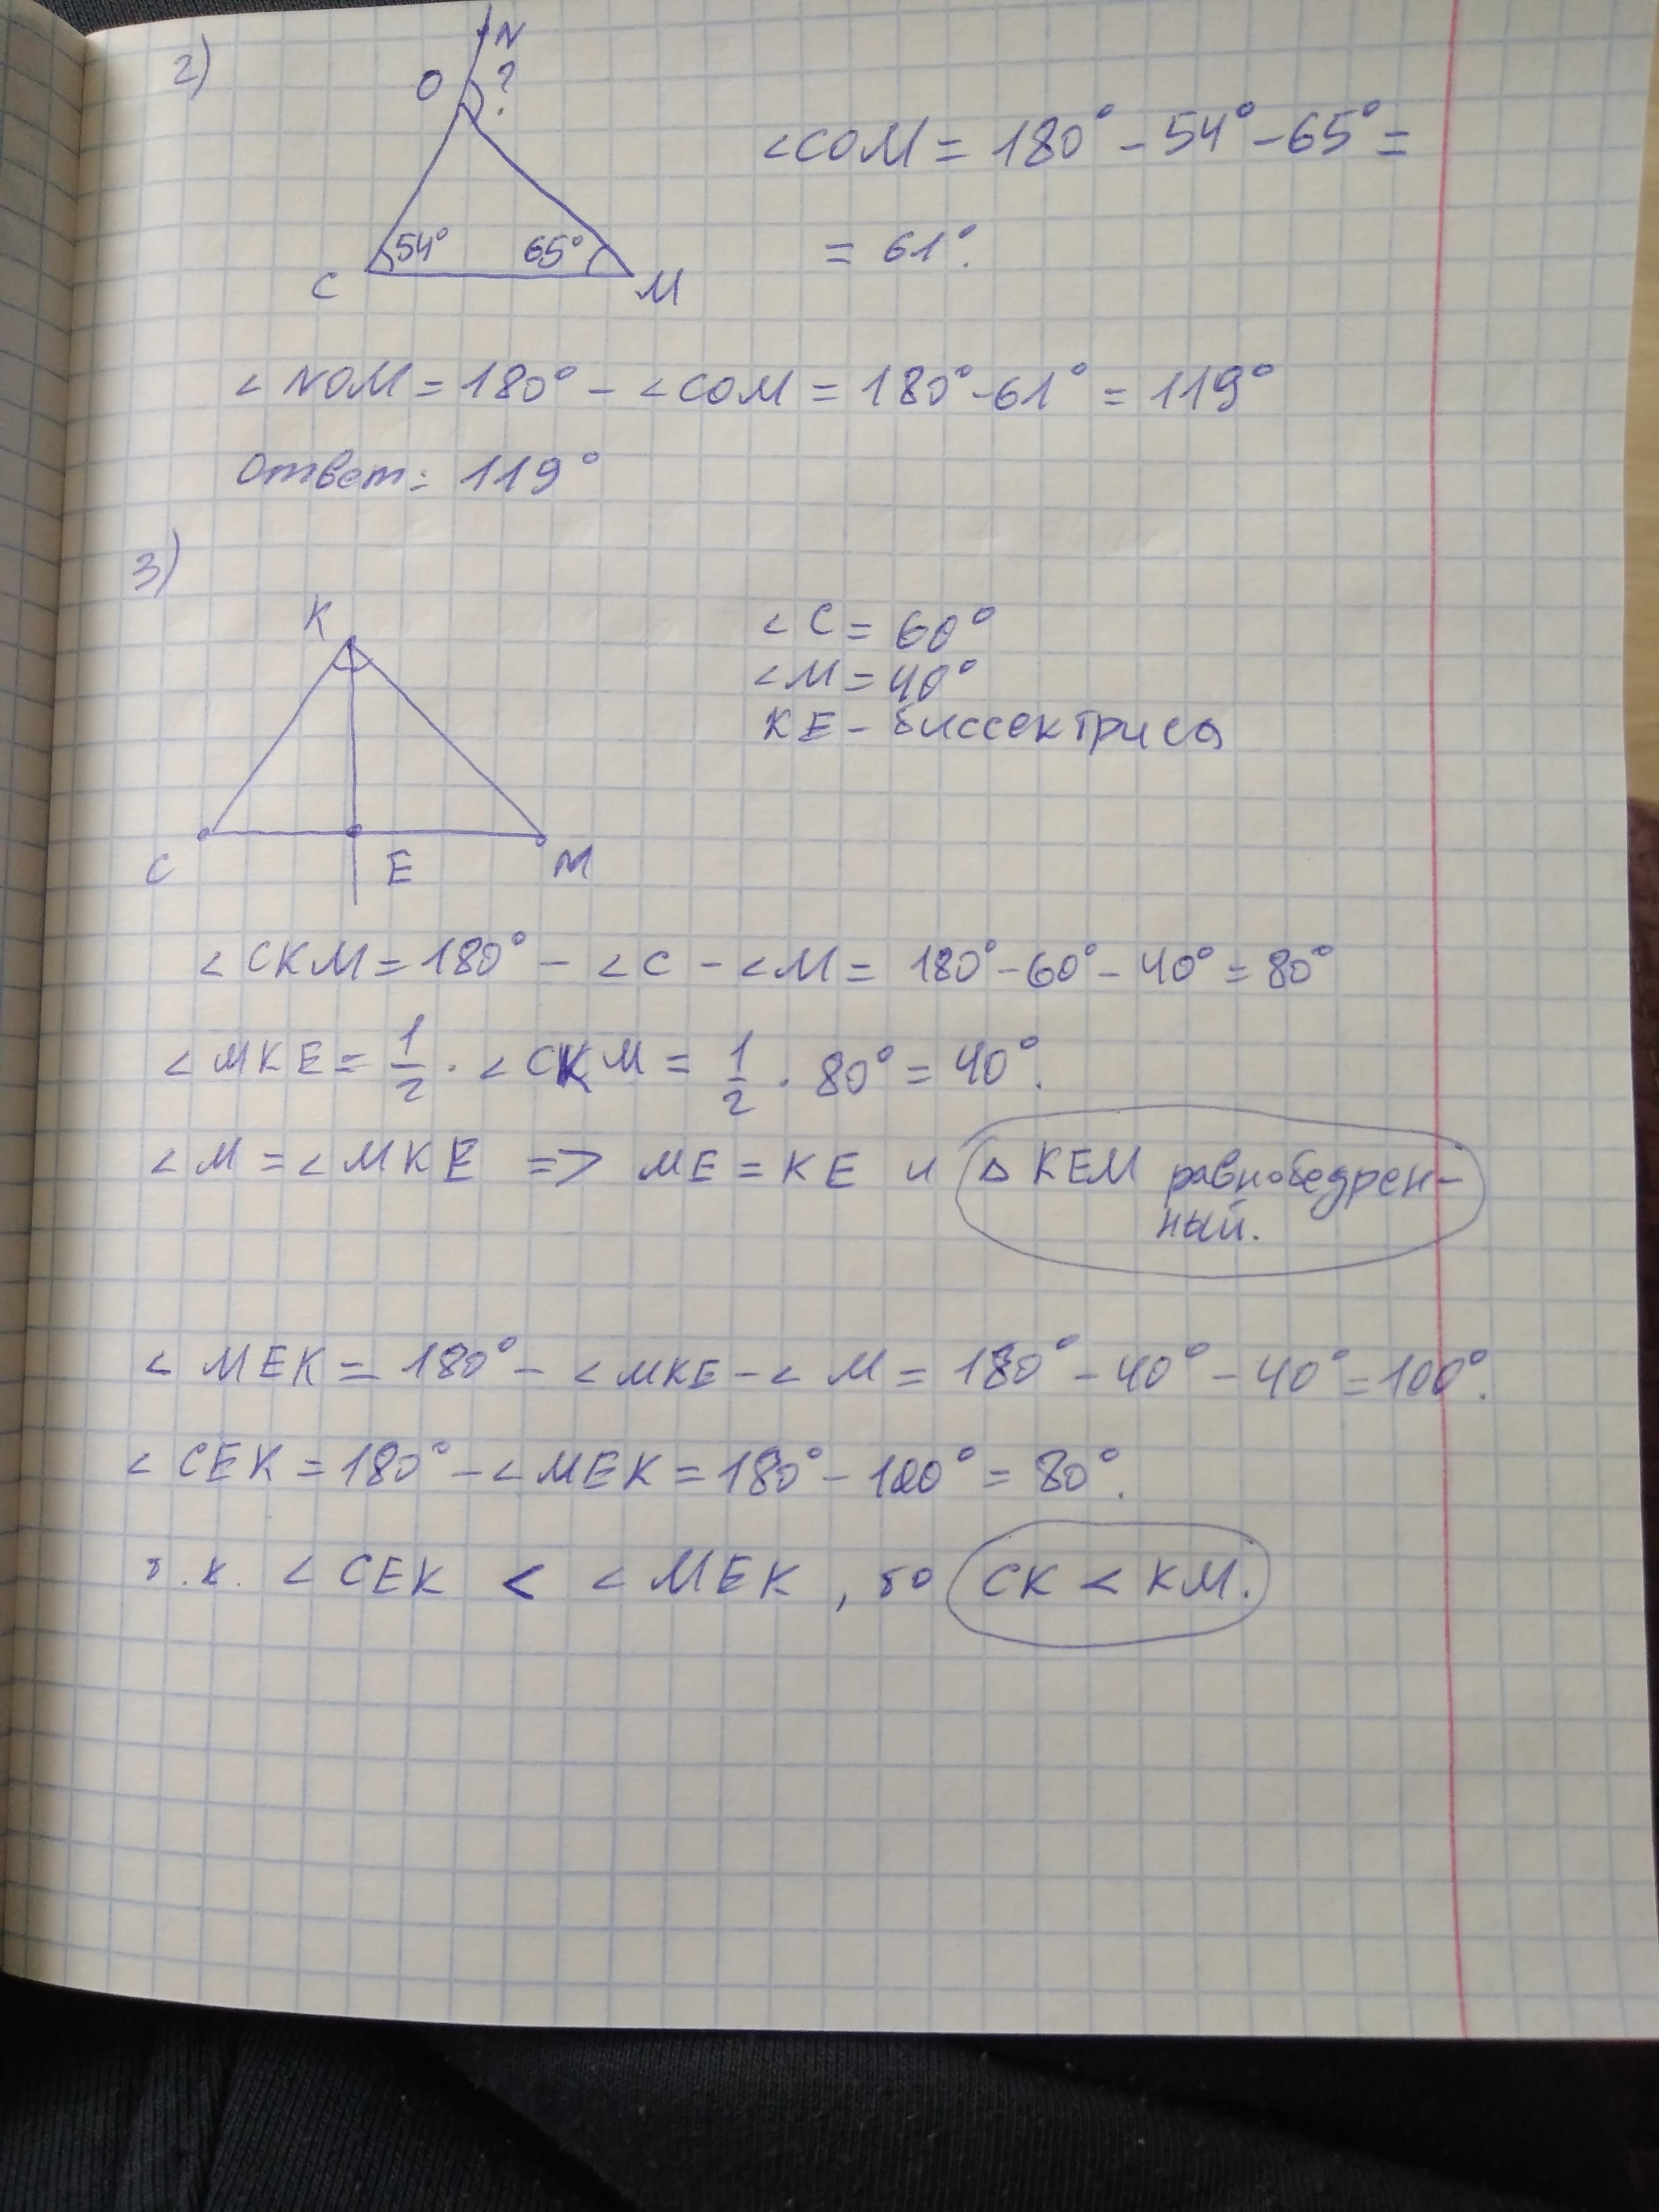 2)
N
O ?
∠COM = 180° - 54° - 65° =
54° 65°
C M
= 61°.
∠NOM = 180° - ∠COM = 180° - 61° = 119°
Ответ: 119°
3)
K
∠C = 60°
∠M = 40°
KE - биссектриса
C E M
∠CKM = 180° - ∠C - ∠M = 180° - 60° - 40° = 80°
∠MKE = 1/2 · ∠CKM = 1/2 · 80° = 40°.
∠M = ∠MKE => ME = KE и Δ KEM равнобедрен-
ный.
∠MEK = 180° - ∠MKE - ∠M = 180° - 40° - 40° = 100°.
∠CEK = 180° - ∠MEK = 180° - 100° = 80°.
т.к. ∠CEK < ∠MEK, то CK < KM.